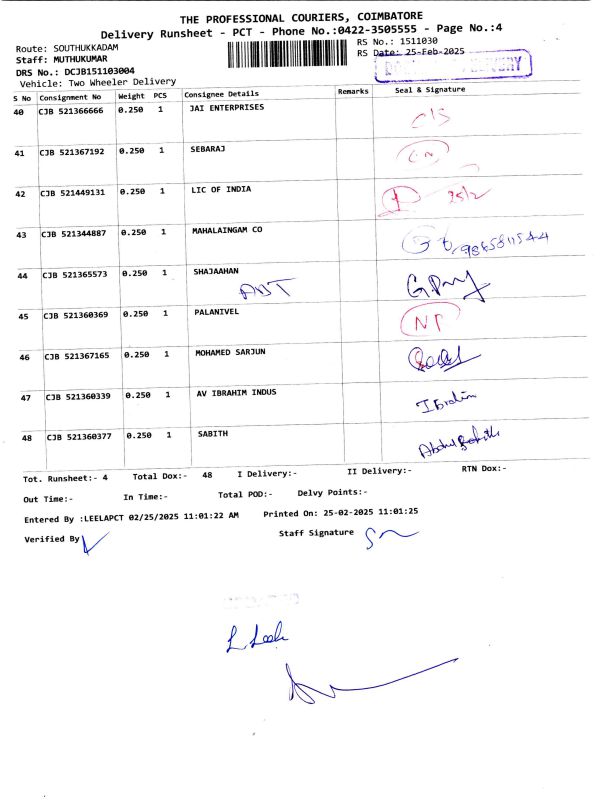 THE PROFESSIONAL COURIERS, COIMBATORE
Delivery Runsheet - PCT - Phone No.:0422-3505555 - Page No.:4
Route: SOUTHUKKADAM
RS No.: 1511030
Staff: MUTHUKUMAR
RS Date: 25-Feb-2025
DRS No.: DCJB151103004
DELIVERY
Vehicle: Two Wheeler Delivery
S No Consignment No Weight PCS Consignee Details Remarks Seal & Signature
40 CJB 521366666 0.250 1 JAI ENTERPRISES
41 CJB 521367192 0.250 1 SEBARAJ
42 CJB 521449131 0.250 1 LIC OF INDIA 25/2
43 CJB 521344887 0.250 1 MAHALAINGAM CO
44 CJB 521365573 0.250 1 SHAJAAHAN
45 CJB 521360369 0.250 1 PALANIVEL
46 CJB 521367165 0.250 1 MOHAMED SARJUN
47 CJB 521360339 0.250 1 AV IBRAHIM INDUS Ibrahim
48 CJB 521360377 0.250 1 SABITH
Tot. Runsheet:- 4 Total Dox:- 48 I Delivery:- II Delivery:- RTN Dox:-
Out Time:- In Time:- Total POD:- Delvy Points:-
Entered By :LEELAPCT 02/25/2025 11:01:22 AM Printed On: 25-02-2025 11:01:25
Verified By Staff Signature